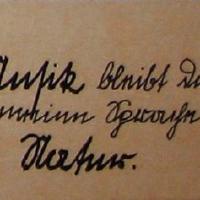 Musik bleibt
meine Sprache
Natur.